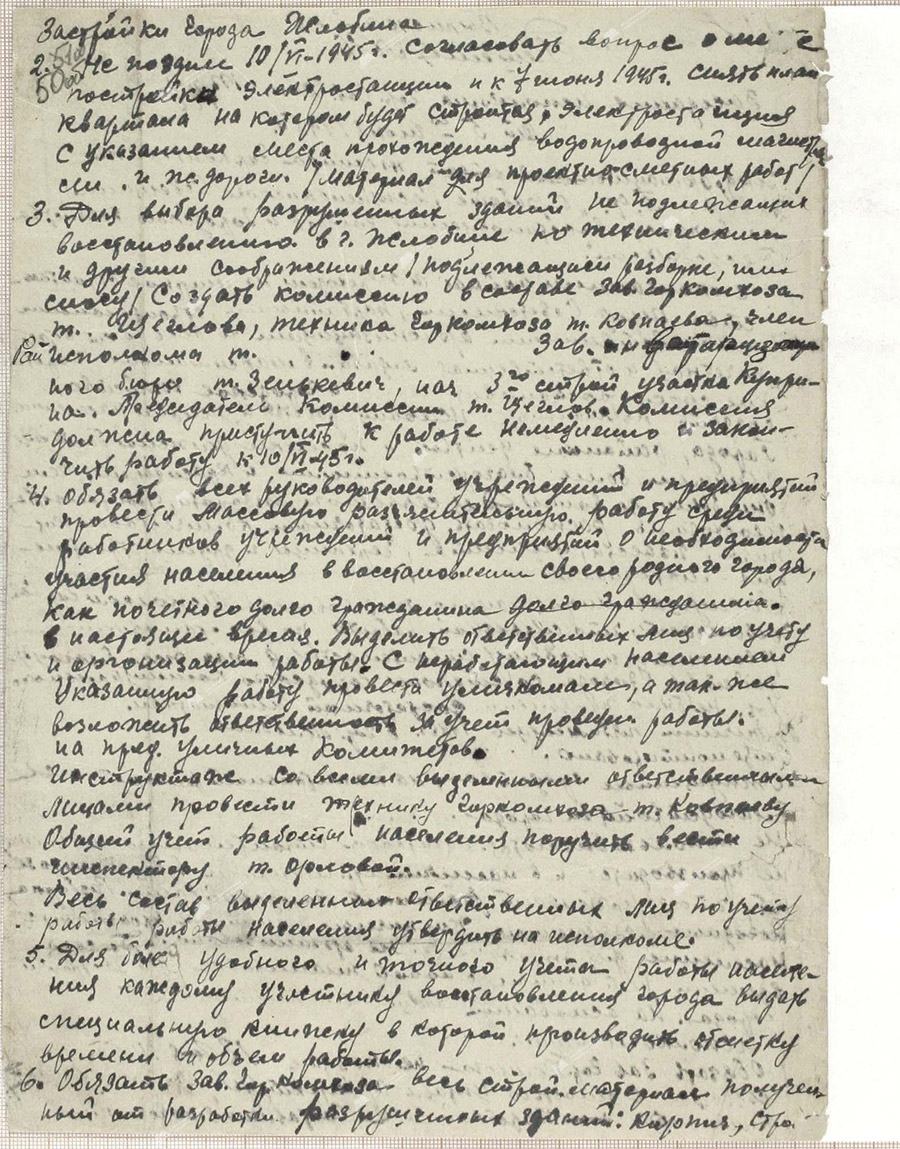 Застройки города Жлобина
2. Не поздне 10/VI-1945г. согласовать вопрос о ме
постройки электростанции и к 7 июня 1945г. снять план
квартала на котором будет строится электростанция
с указанием места прохождения водопроводной магистра
сти. и ж.дороги. /материал для проектно сметных работ/
3. Для выбора разрушенных зданий не подлежащих
восстановлению в г. Жлобине по техническим
и другим соображениям /подлежащиси разборке, или
сносу/ Создать комиссию в составе Зав. Горкомхоза
т. Щеглова, техника Горкомхоза т. Ковпаева, член
Рай исполкома т. Зав.
ного бюро т. Зенькевич, нач 3го строй участка Купри-
на. Председатель Комиссии т. Щеглов. Комиссия
должна приступить к работе немедленно и закон-
чить работу к 10/VI-45г.
4. Обязать всех руководителей учреждений и предприятий
провести массовую раз'яснительную работу среди
работников учреждений и предприятий о необходимости
участия населения в восстановлении своего родного города,
как почетного долго гражданина долго гражданина.
в настоящи время. Выделить ответственных лиц по учету
и организации работы. С неработающим населением
Указанную работу провести уличкомами, а так-же
возложить ответственность за учет проведен. работы.
на пред. уличных комитетов.
Инструктаж со всеми выделенными ответственными
лицами провести технику Горкомхоза т. Ковпаеву
Общий учет работы населения поручить вести
инспектору т. Орловой.
Весь состав выделенных ответственных лиц по учету
работы работы населения утвердить на исполкоме.
5. Для более удобного и точного учета работы населе-
ния каждому участнику восстановления города выдать
специальную книжку в которой производить отметку
времени и объем работы.
6. Обязать Зав. Горкомхоза весь строй. материал получен-
ный от разработки разрушенных зданий: Кирпич, стро